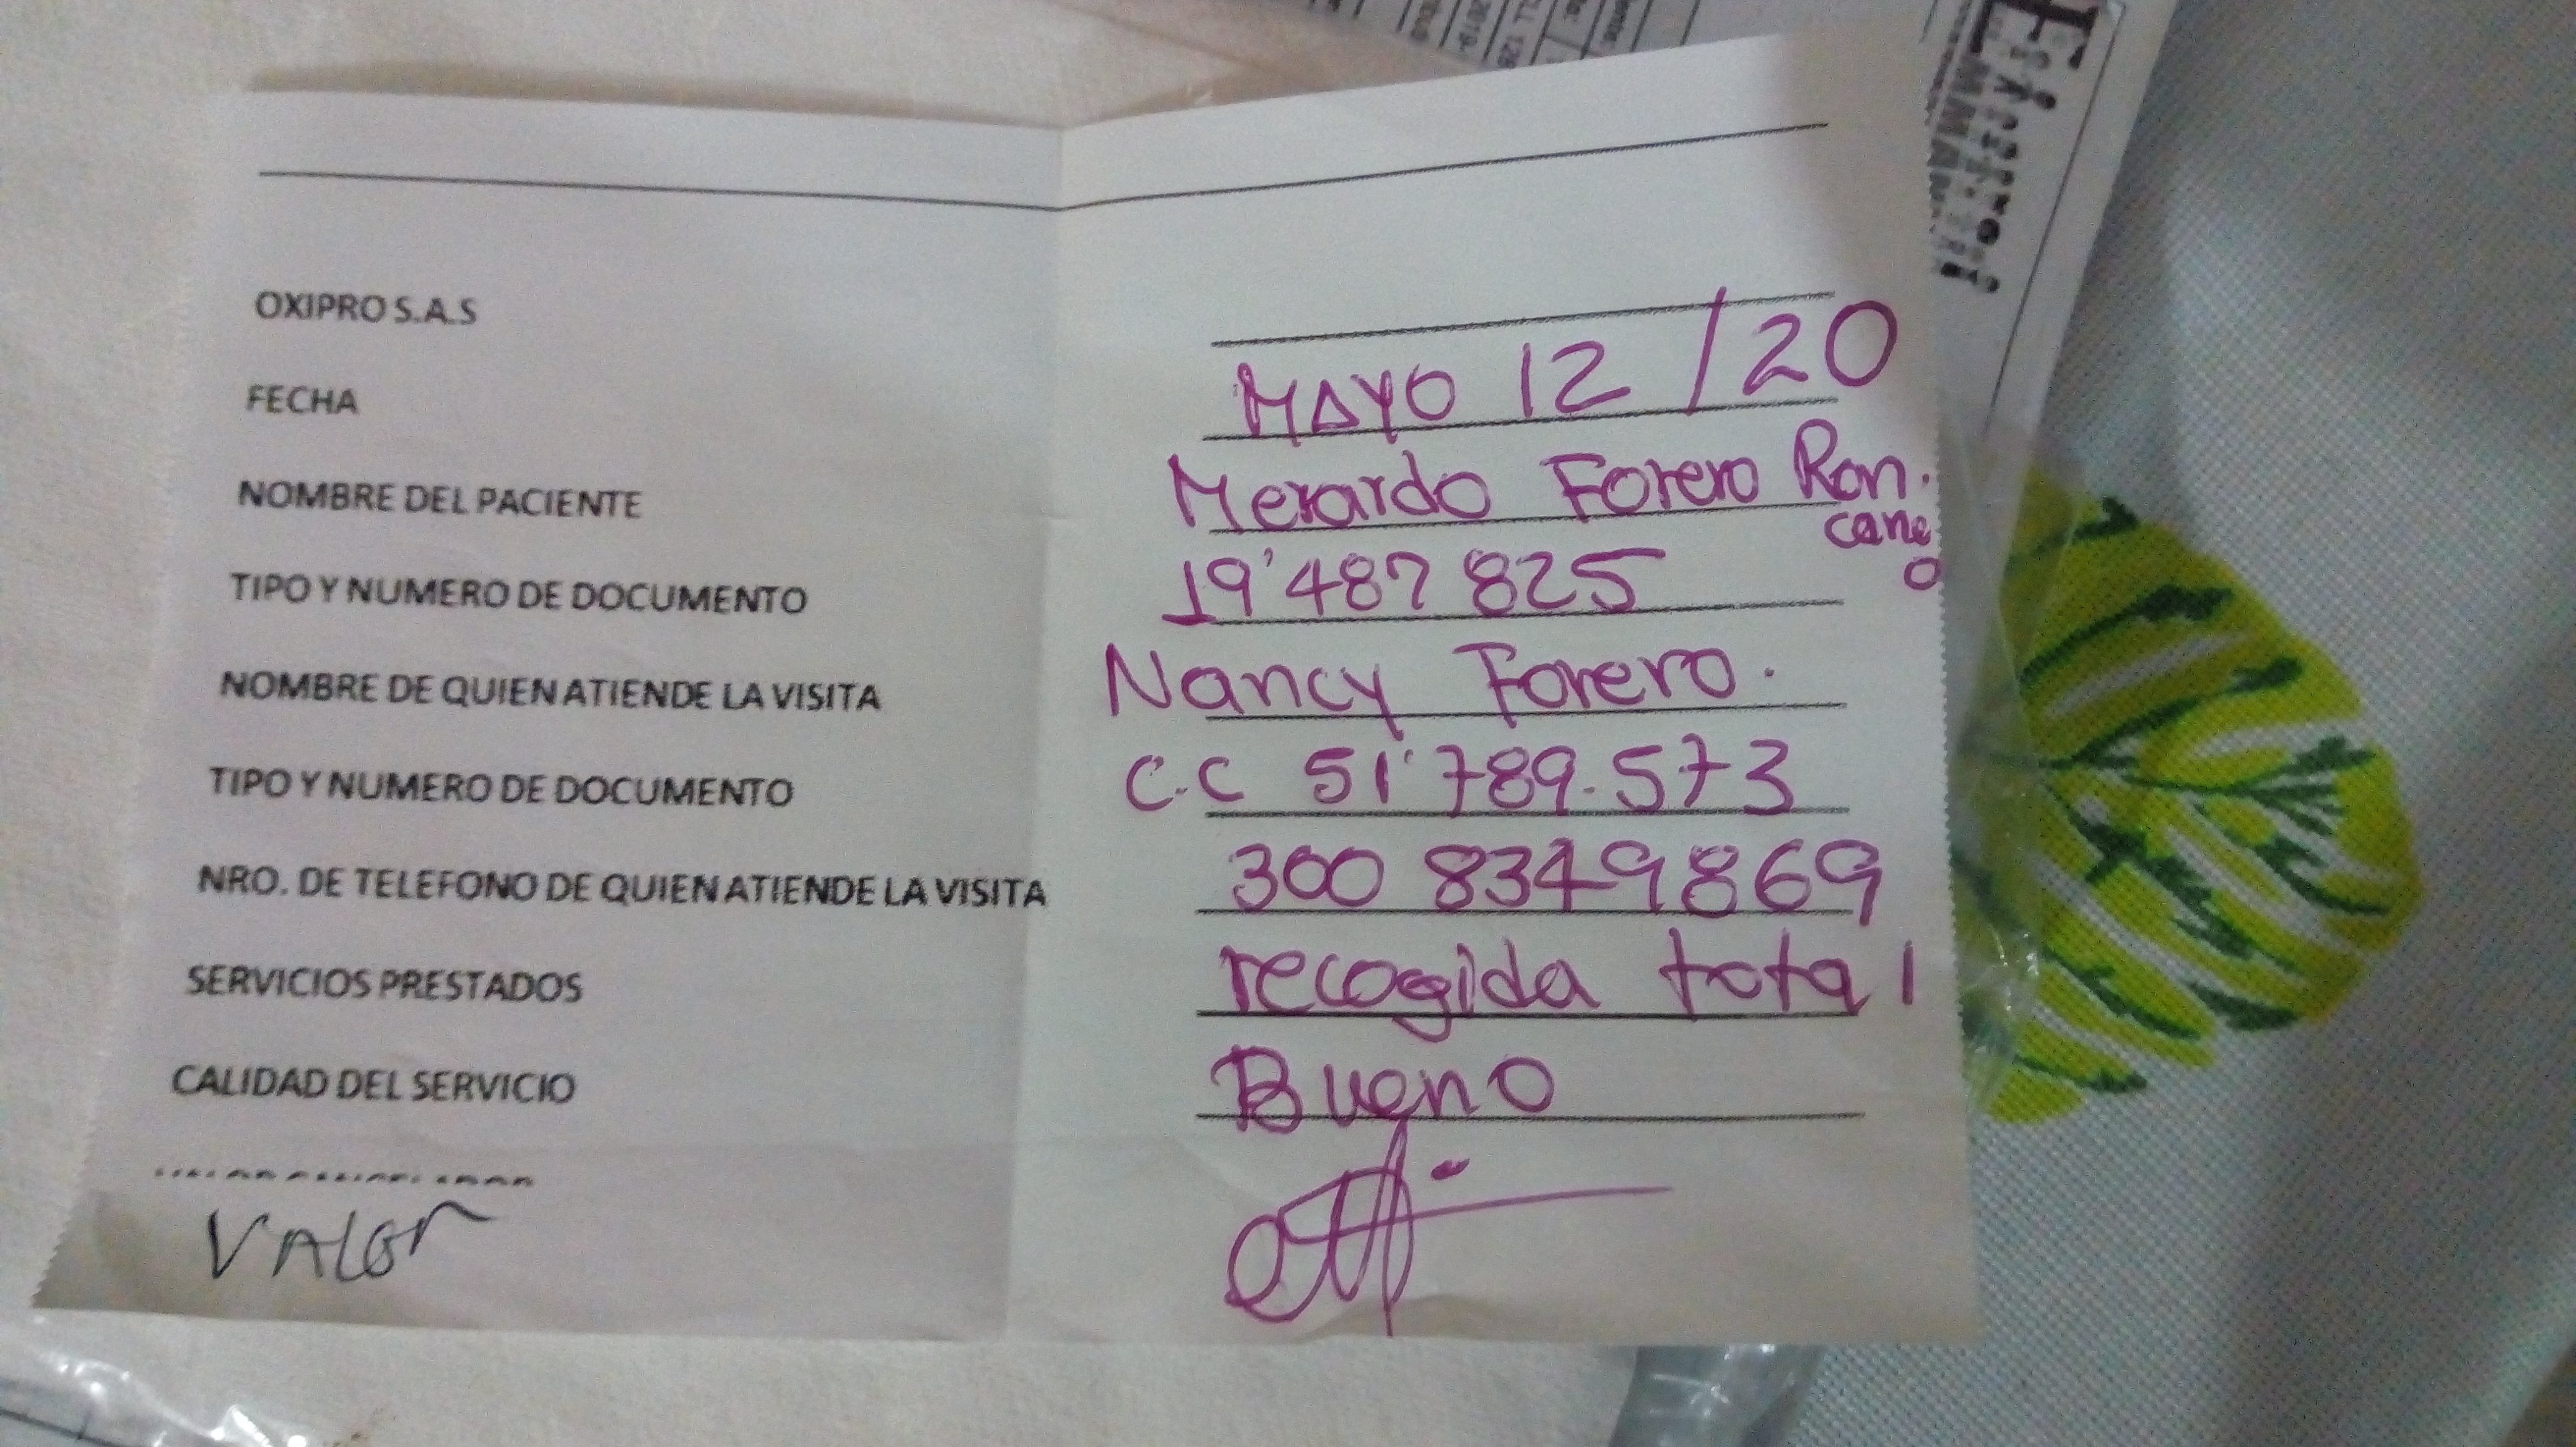 OXIPRO S.A.S
FECHA MAYO 12/20
NOMBRE DEL PACIENTE Merardo Forero Ron.
cane
o
TIPO Y NUMERO DE DOCUMENTO 19'487 825
NOMBRE DE QUIEN ATIENDE LA VISITA Nancy Forero.
TIPO Y NUMERO DE DOCUMENTO C.C 51'789.573
NRO. DE TELEFONO DE QUIEN ATIENDE LA VISITA 300 8349869
SERVICIOS PRESTADOS recogida total
CALIDAD DEL SERVICIO Bueno
VALOR